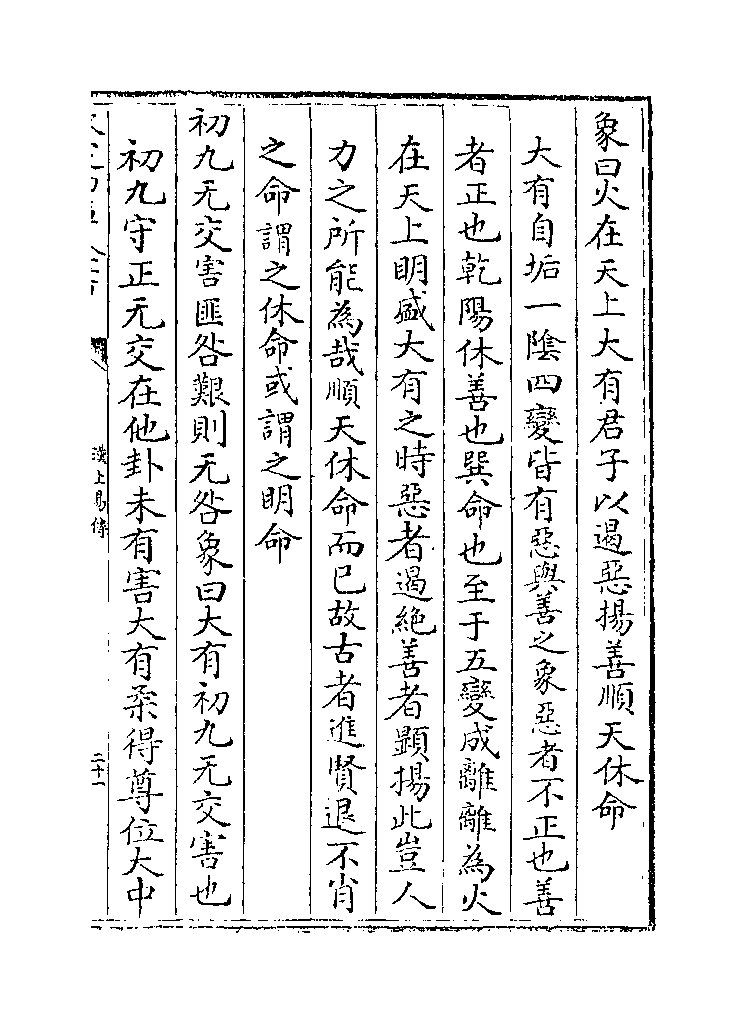 象曰火在天上大有君子以遏惡揚善順天休命
大有自垢一陰四變皆有惡與善之象惡者不正也善
者正也乾陽休善也巽命也至于五變成離離為火
在天上明盛大有之時惡者遏絶善者顯揚此豈人
力之所能為哉順天休命而已故古者進賢退不肖
之命謂之休命或謂之明命
初九无交害匪咎艱則无咎象曰大有初九无交害也
初九守正无交在他卦未有害大有柔得尊位大中
漢上易傳
二十一